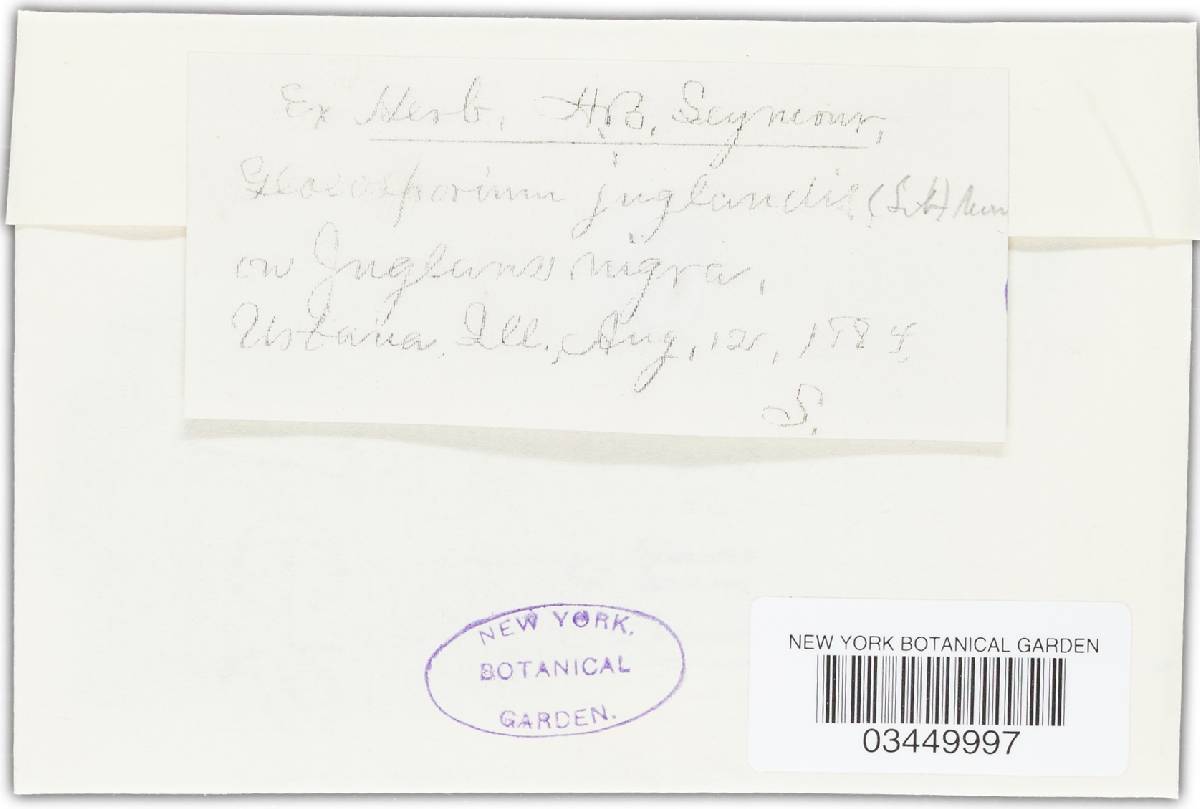 Ex Herb. A.B. Seymour,
Gloeosporium juglandis (Lib)
on Juglans nigra,
Urbana, Ill., Aug, 12, 188
S.
NEW YORK.
BOTANICAL
GARDEN.
NEW YORK BOTANICAL GARDEN
03449997